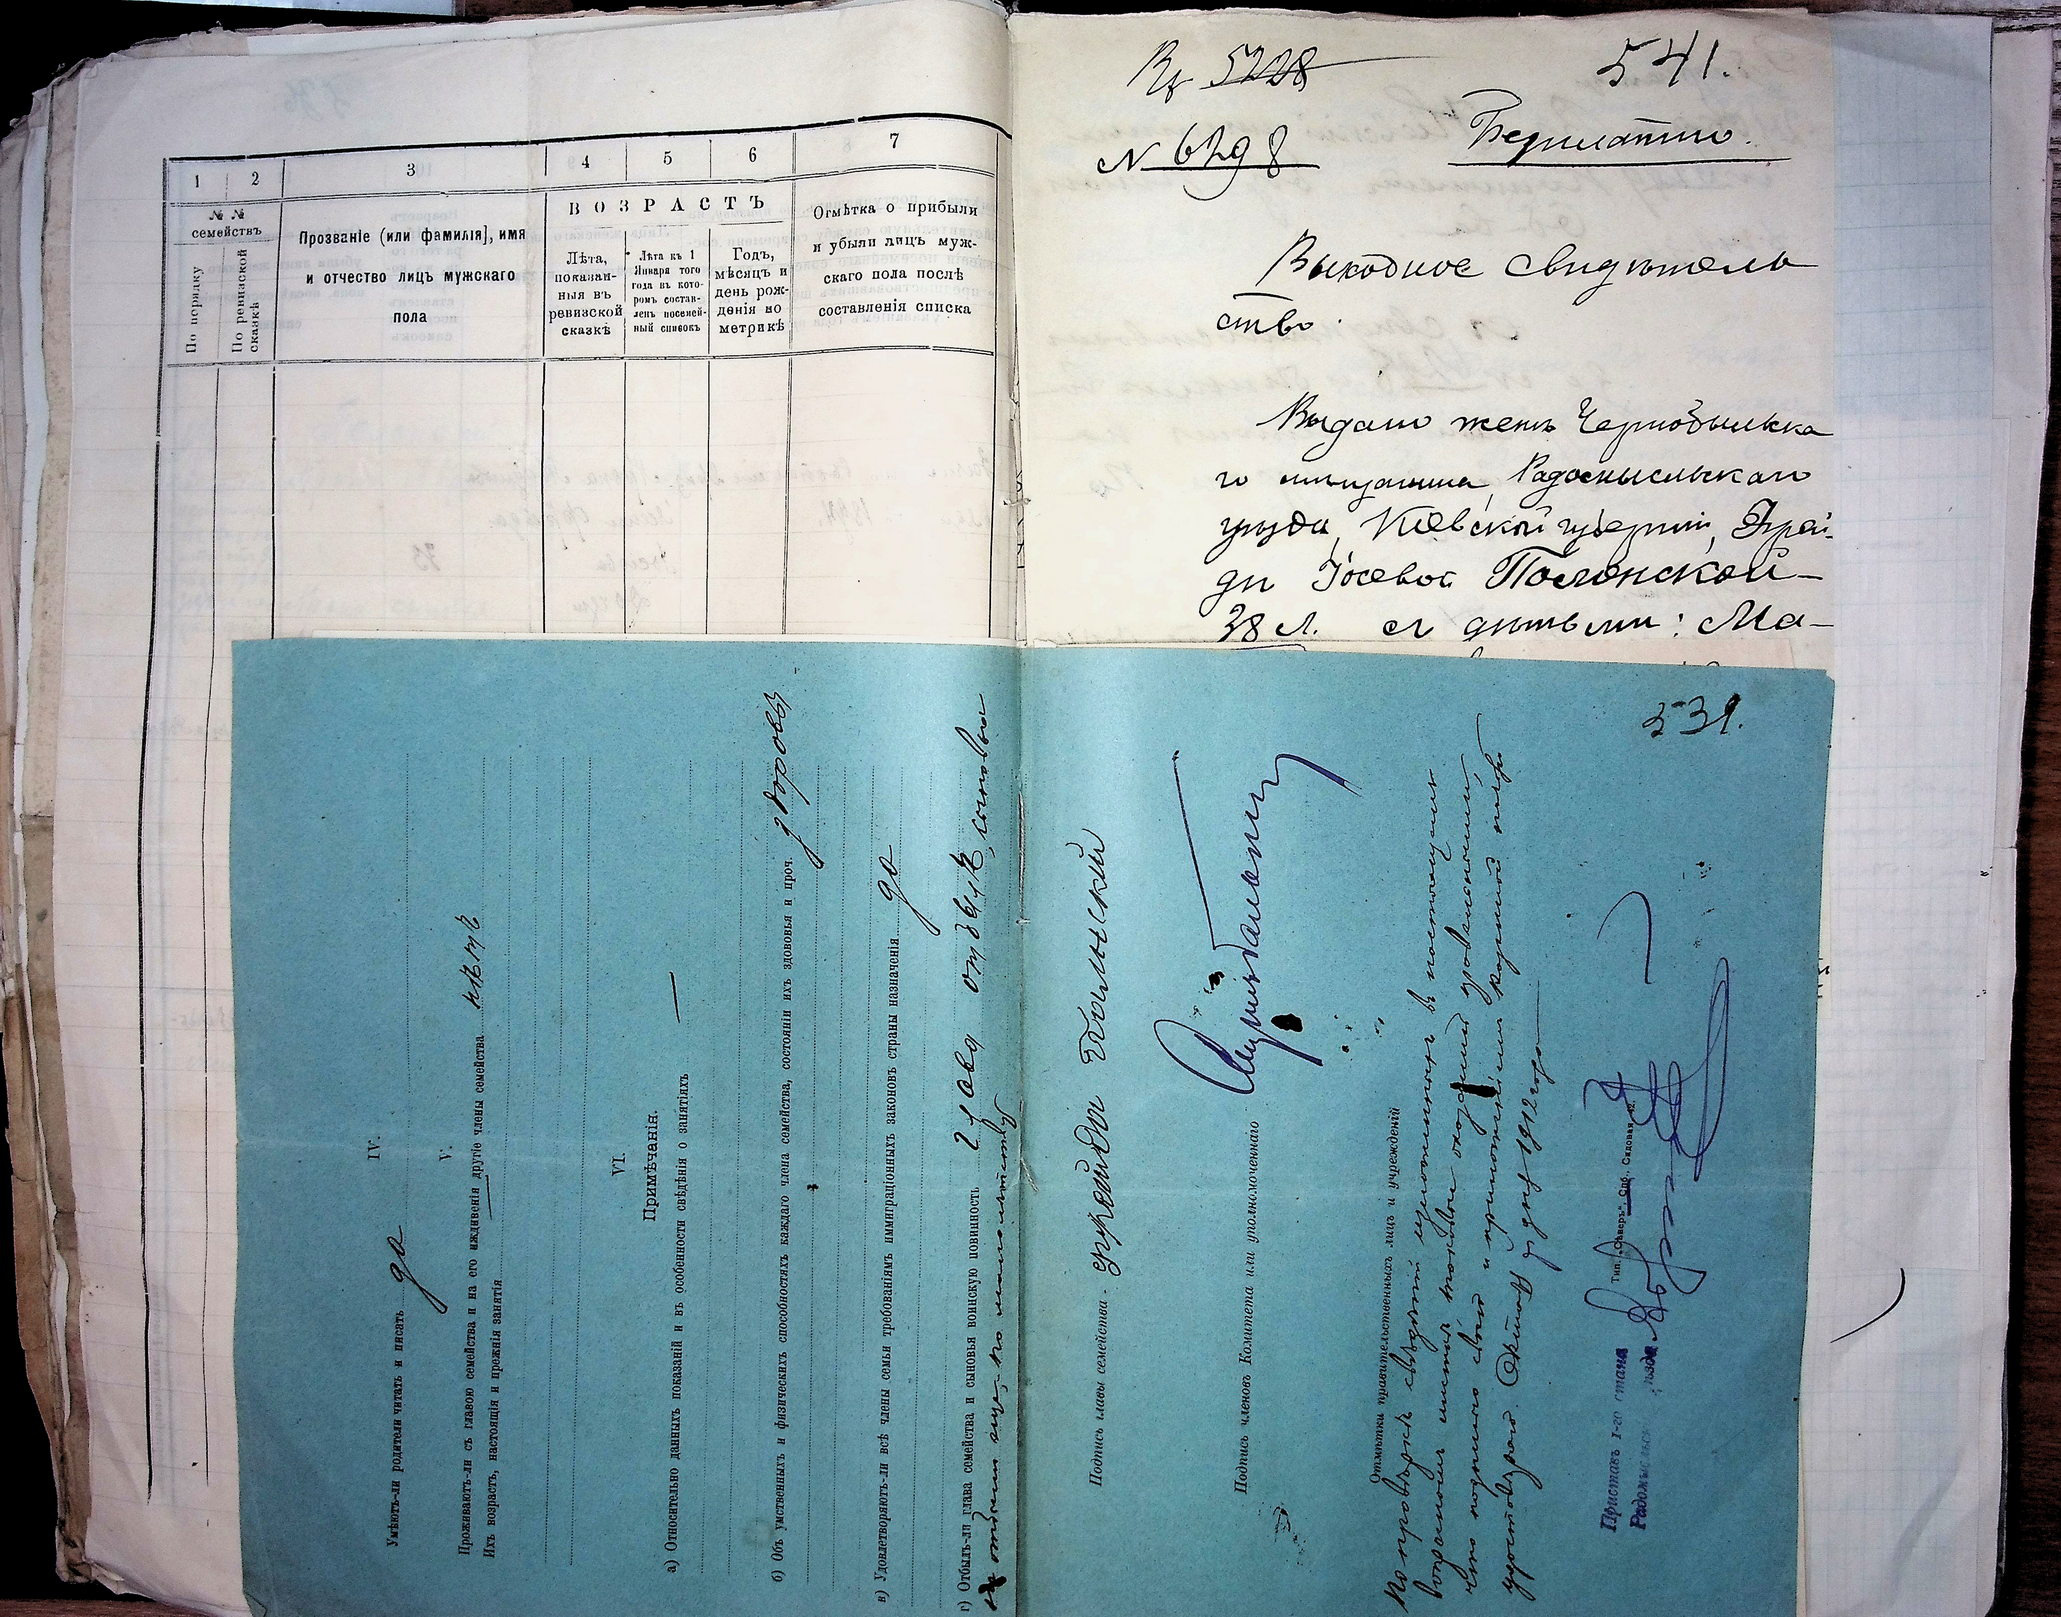 1 2 3 4 5 6 7
№ № семействъ
По порядку
По ревизской сказкѣ
Прозваніе (или фамилія), имя
и отчество лицъ мужскаго
пола
ВОЗРАСТЪ
Лѣта,
показан-
ныя въ
ревизской
сказкѣ
Лѣта къ 1
Января того
года въ кото-
ромъ состав-
ленъ посемей-
ный списокъ
Годъ,
мѣсяцъ и
день рож-
денія по
метрикѣ
Отмѣтка о прибыли
и убыли лицъ муж-
скаго пола послѣ
составленія списка
5228
541.
N 6298
Безплатно.
Выходное свидѣтель
ство.
Выдано женѣ Чернобыльска
го мѣщанина, Радомысльскаго
уѣзда, Кіевской губерніи, Фрей-
ды Іосевой Полонской
38 л. съ дѣтьми: Ма-
531.
IV.
Умѣютъ-ли родители читать и писать да
V.
Проживаютъ-ли съ главою семейства и на его иждивеніи другіе члены семейства нѣтъ
Ихъ возрастъ, настоящія и прежнія занятія —
VI.
Примѣчанія.
а) Относительно данныхъ показаній и въ особенности свѣдѣнія о занятіяхъ —
б) Объ умственныхъ и физическихъ способностяхъ каждаго члена семейства, состояніи ихъ здоровья и проч. здоровы
в) Удовлетворяютъ-ли всѣ члены семьи требованіямъ иммиграціонныхъ законовъ страны назначенія да
г) Отбылъ-ли глава семейства и сыновья воинскую повинность глава отбылъ, сыновья
не отбыли еще по малолѣтству
Подпись главы семейства -
Подпись членовъ Комитета или уполномоченнаго
Отмѣтки правительственныхъ лицъ и учрежденій
По провѣркѣ свѣдѣній изложенныхъ въ настоящемъ
опросномъ листѣ таковые
что подписью своей и приложеніемъ казенной печати
удостовѣряю. Октября дня 1912 года
Приставъ 1-го стана
Радомысльск. уѣзда
Тип. „Сѣверъ“ Спб., Садовая